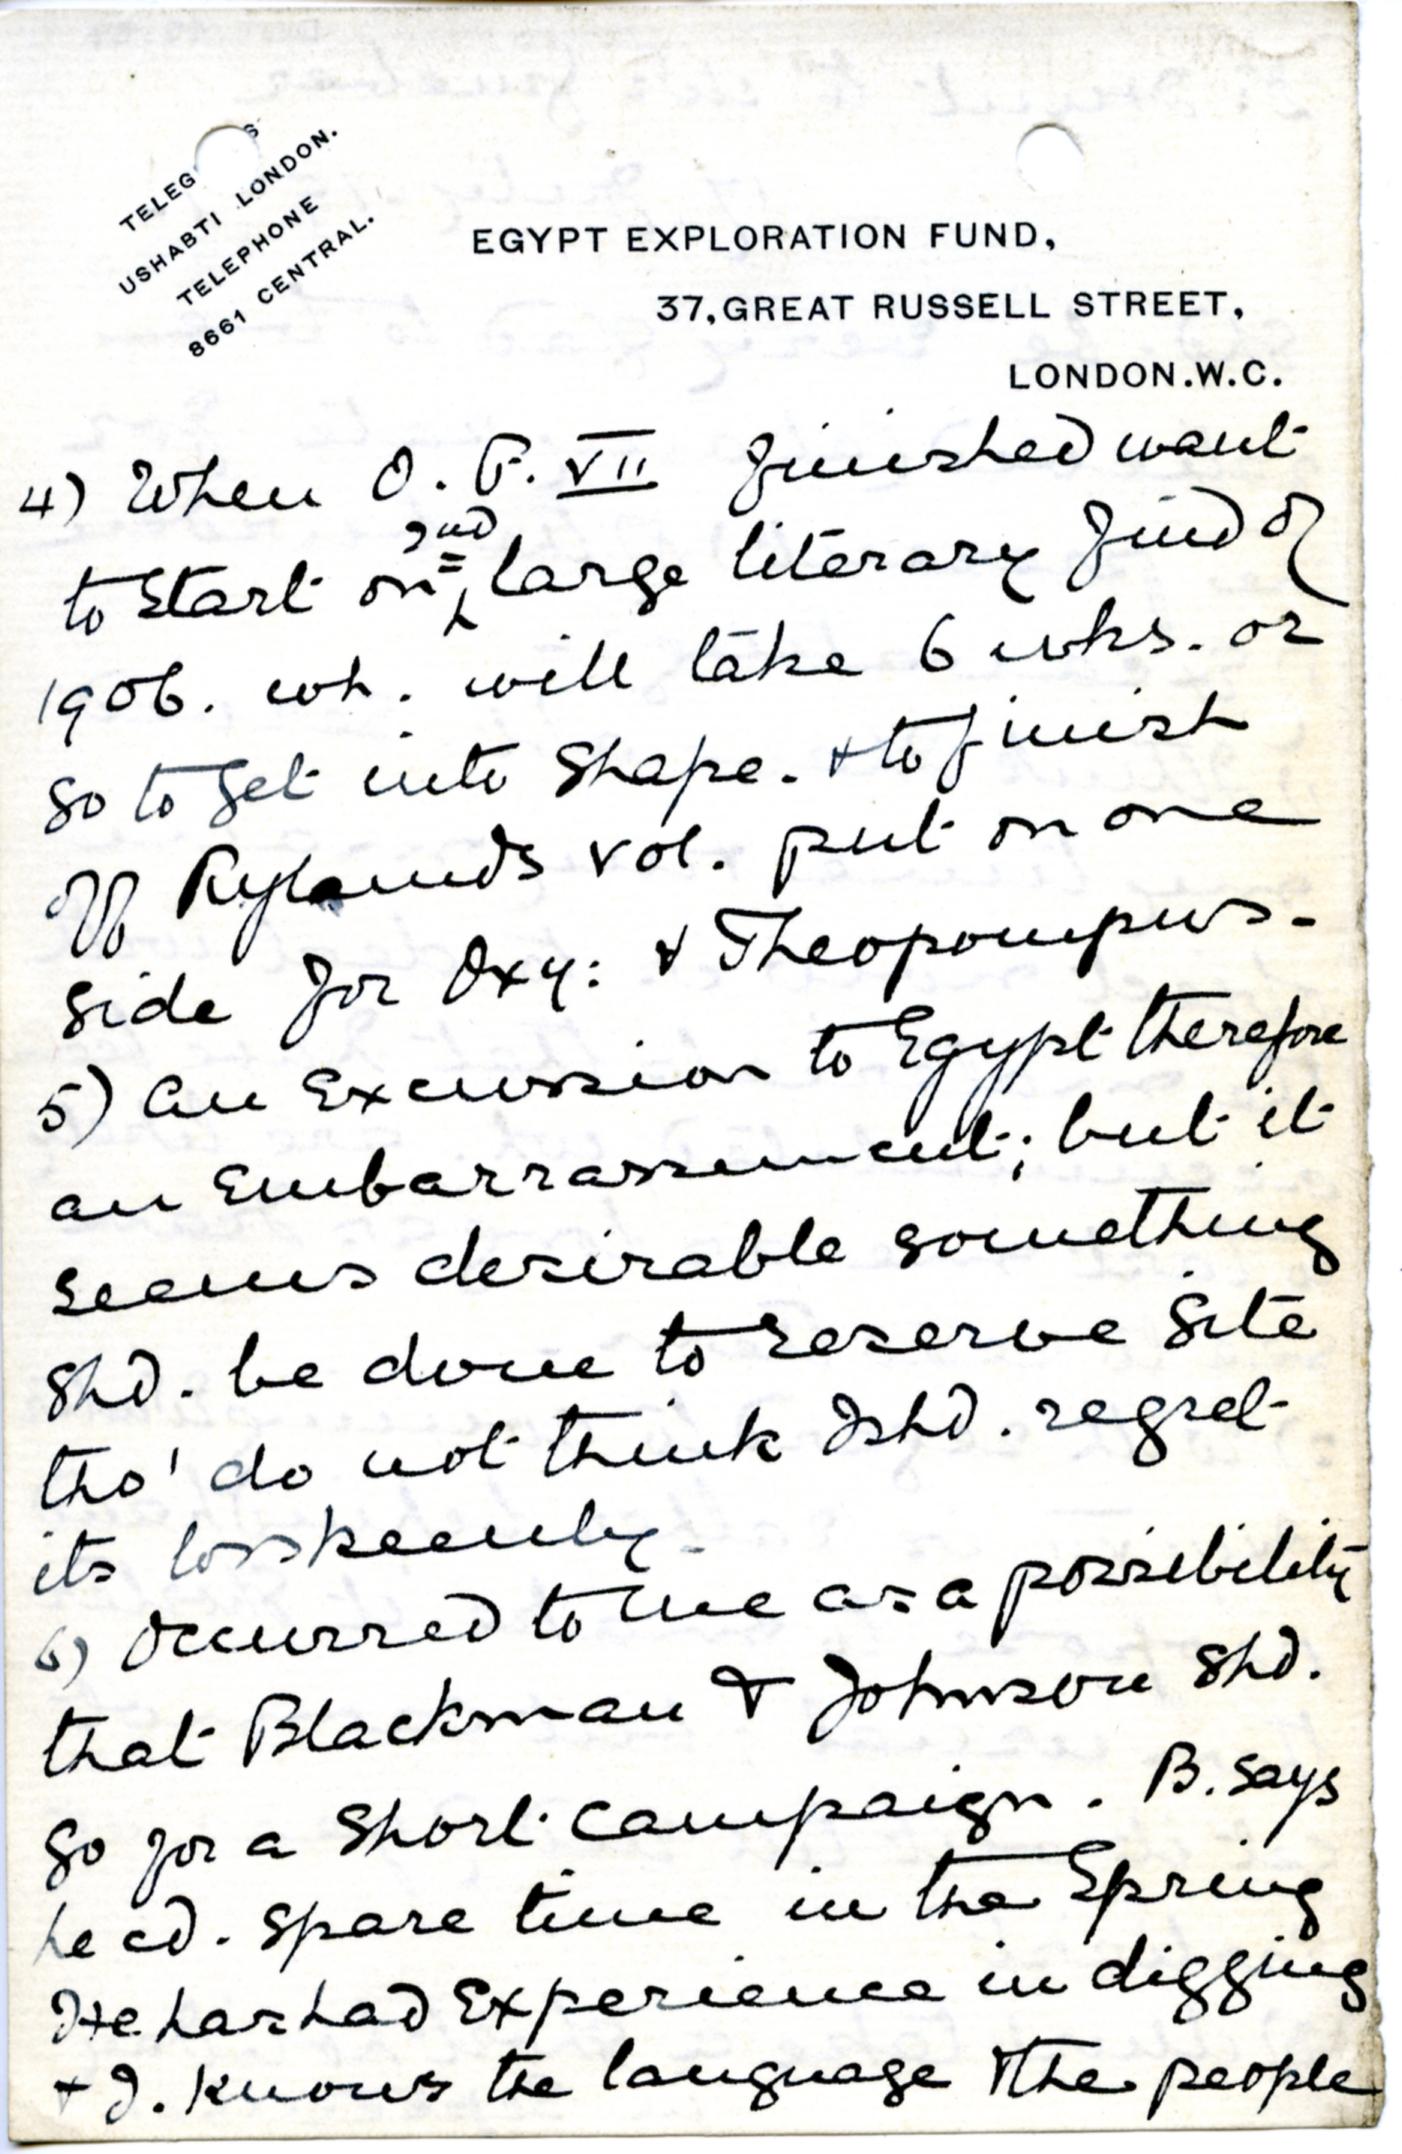 TELEG S
USHABTI LONDON.
TELEPHONE
8661 CENTRAL.
EGYPT EXPLORATION FUND,
37, GREAT RUSSELL STREET,
LONDON. W.C.
4) When O. P. VII finished want
to start on 2nd large literary find of
1906. wh. will take 6 wks. or
so to get into shape. & to finish
off Rylands vol. put on one
side for Oxy: & Theopompus.
5) An excursion to Egypt therefore
an embarrassment; but it
seems desirable something
shd. be done to reserve site
tho' do not think I shd. regret
its loss keenly.
6) Occurred to me as a possibility
that Blackman & Johnson shd.
go for a short campaign. B. says
he cd. spare time in the Spring
He has had experience in digging
& J. knows the language & the people